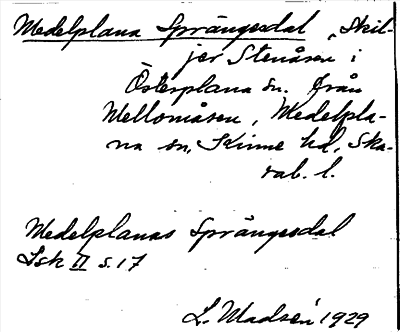 Medelplana Sprängesdal, Skil-
jer Stenåsen i
Österplana sn. från
Mellomåsen, Medelpla-
na sn, Kinne hd, Ska-
rab. l.
Medelplanas Sprängesdal
Lsk II s. 17
L. Madsén 1929